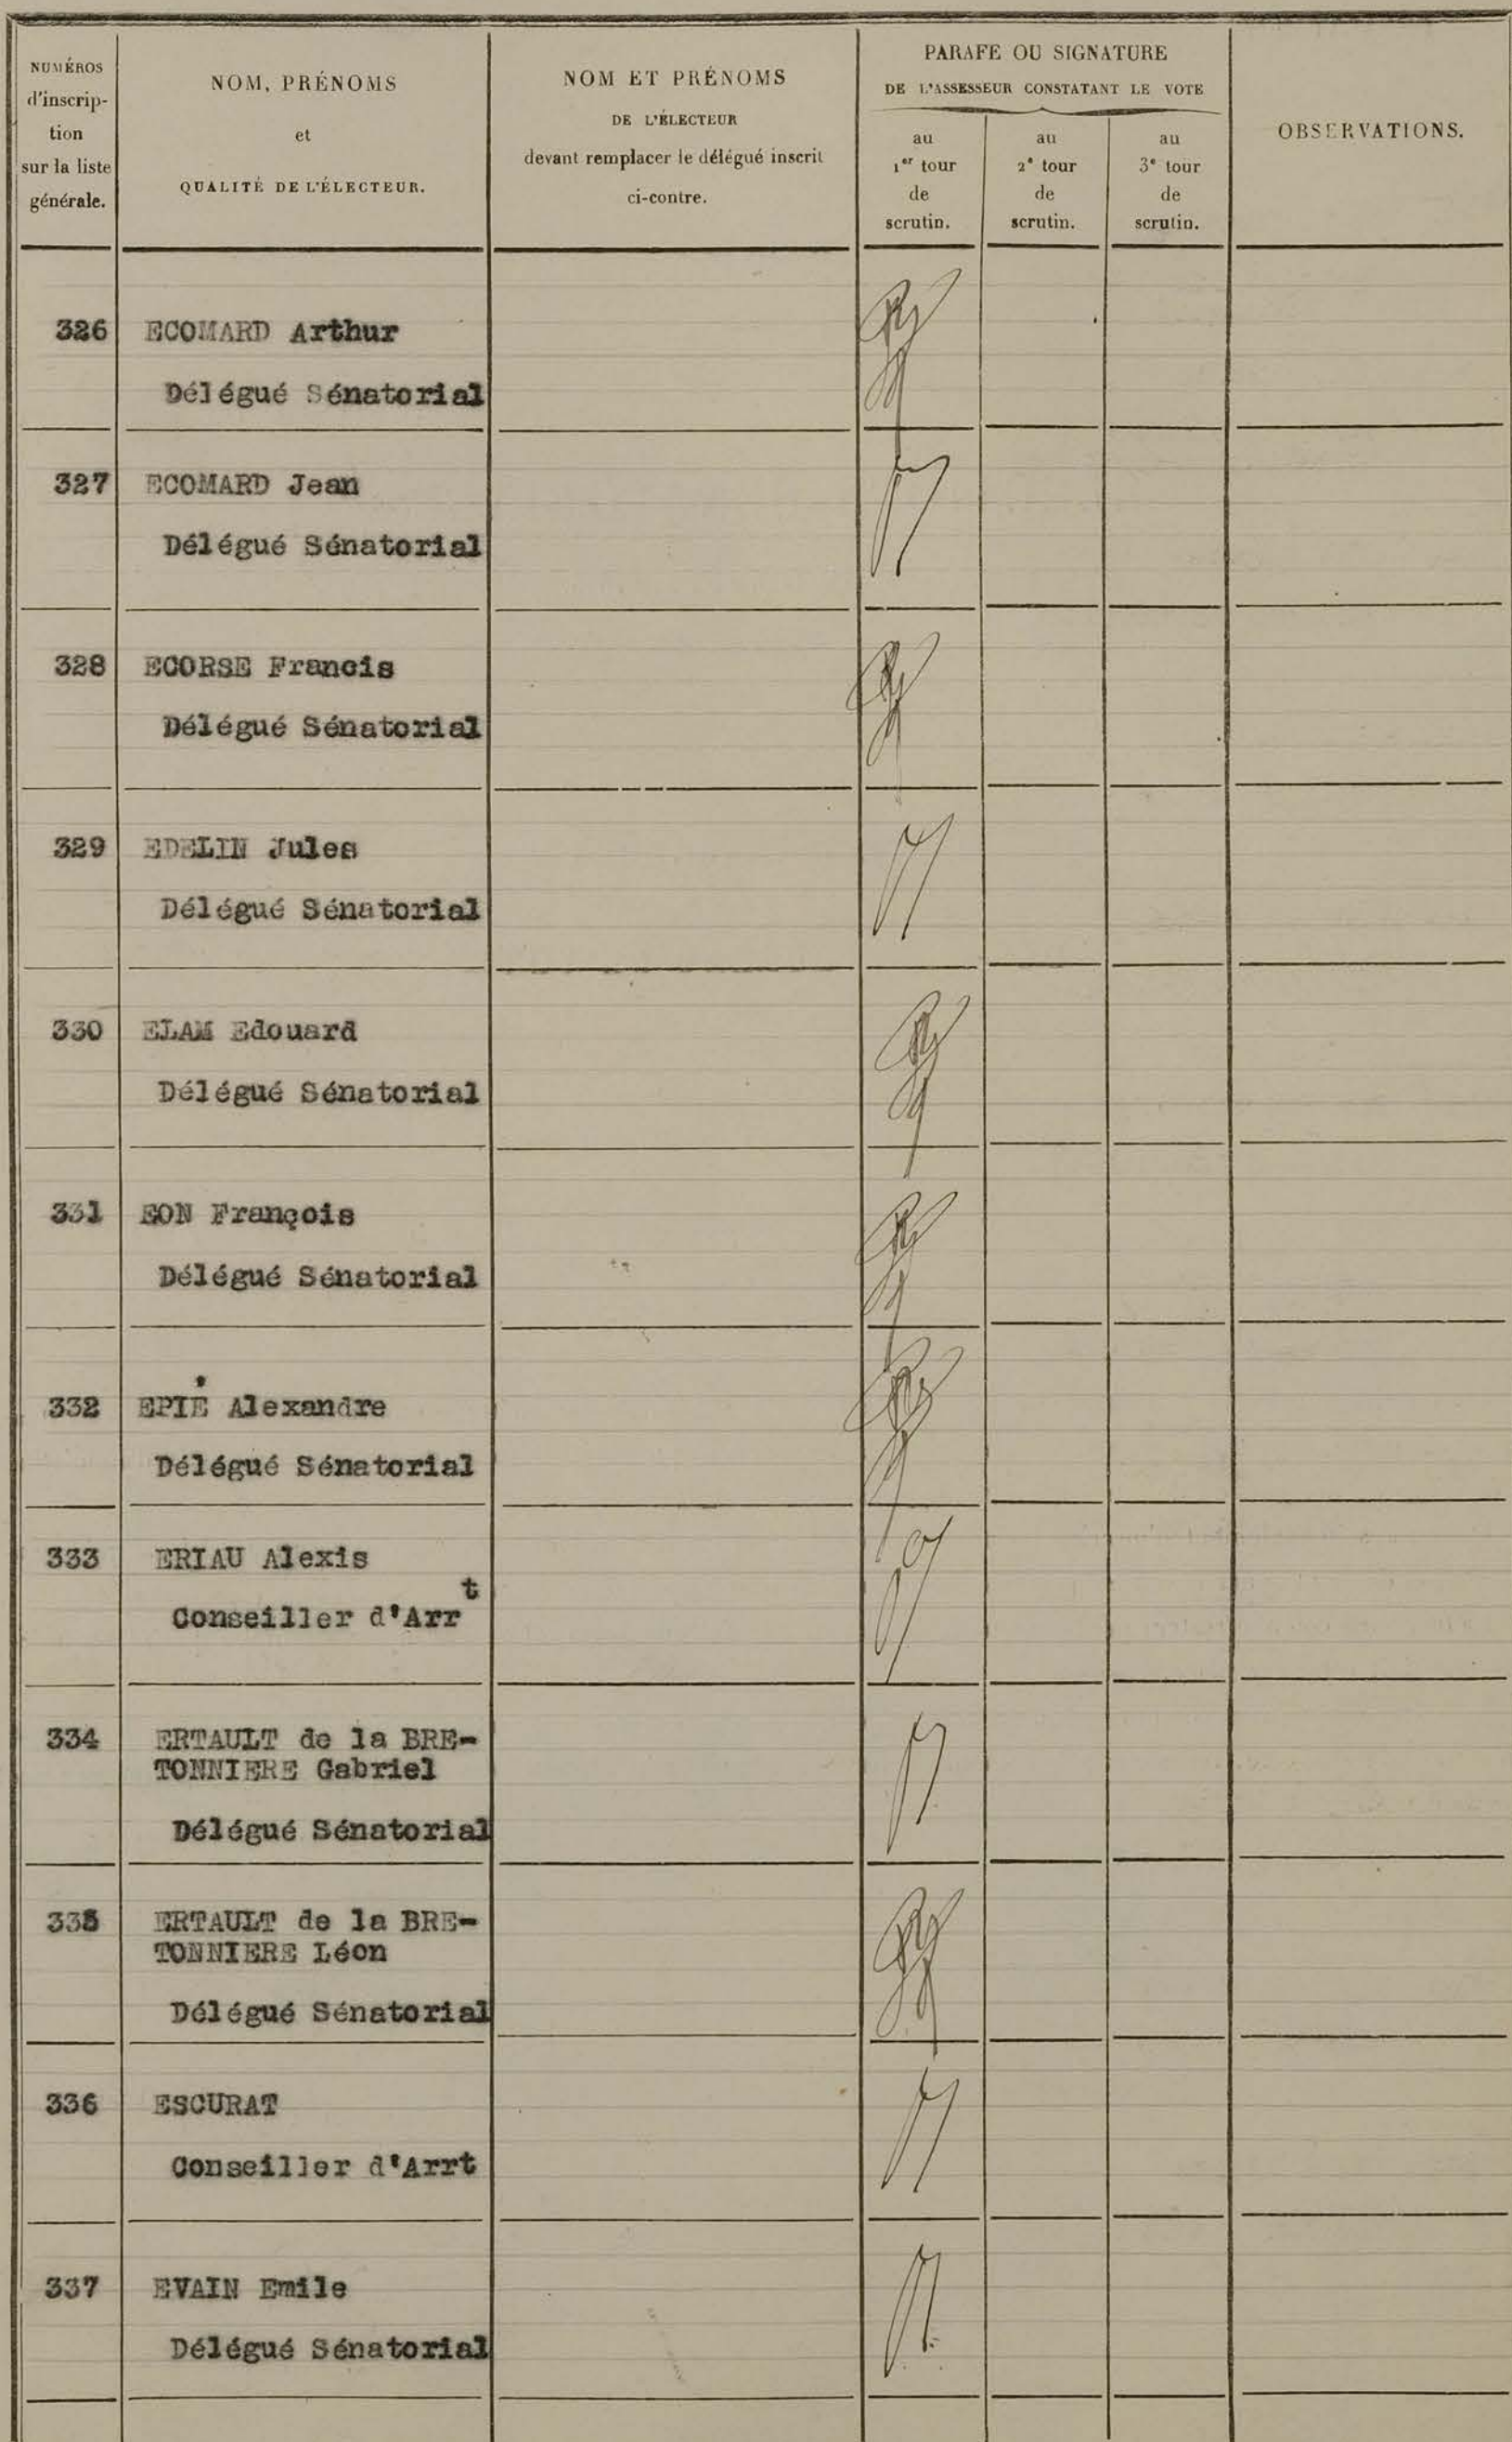 NUMÉROS
d'inscrip-
tion
sur la liste
générale.
NOM, PRÉNOMS
et
QUALITÉ DE L'ÉLECTEUR.
NOM ET PRÉNOMS
DE L'ÉLECTEUR
devant remplacer le délégué inscrit
ci-contre.
PARAFE OU SIGNATURE
DE L'ASSESSEUR CONSTATANT LE VOTE
au
1er tour
de
scrutin.
au
2e tour
de
scrutin.
au
3e tour
de
scrutin.
OBSERVATIONS.
326 ECOMARD Arthur
Délégué Sénatorial
327 ECOMARD Jean
Délégué Sénatorial
328 ECORSE Francis
Délégué Sénatorial
329 EDELIN Jules
Délégué Sénatorial
330 ELAM Edouard
Délégué Sénatorial
331 EON François
Délégué Sénatorial
332 EPIÉ Alexandre
Délégué Sénatorial
333 ERIAU Alexis
Conseiller d'Arrt
334 ERTAULT de la BRE-
TONNIERE Gabriel
Délégué Sénatorial
335 ERTAULT de la BRE-
TONNIERE Léon
Délégué Sénatorial
336 ESCURAT
Conseiller d'Arrt
337 EVAIN Emile
Délégué Sénatorial